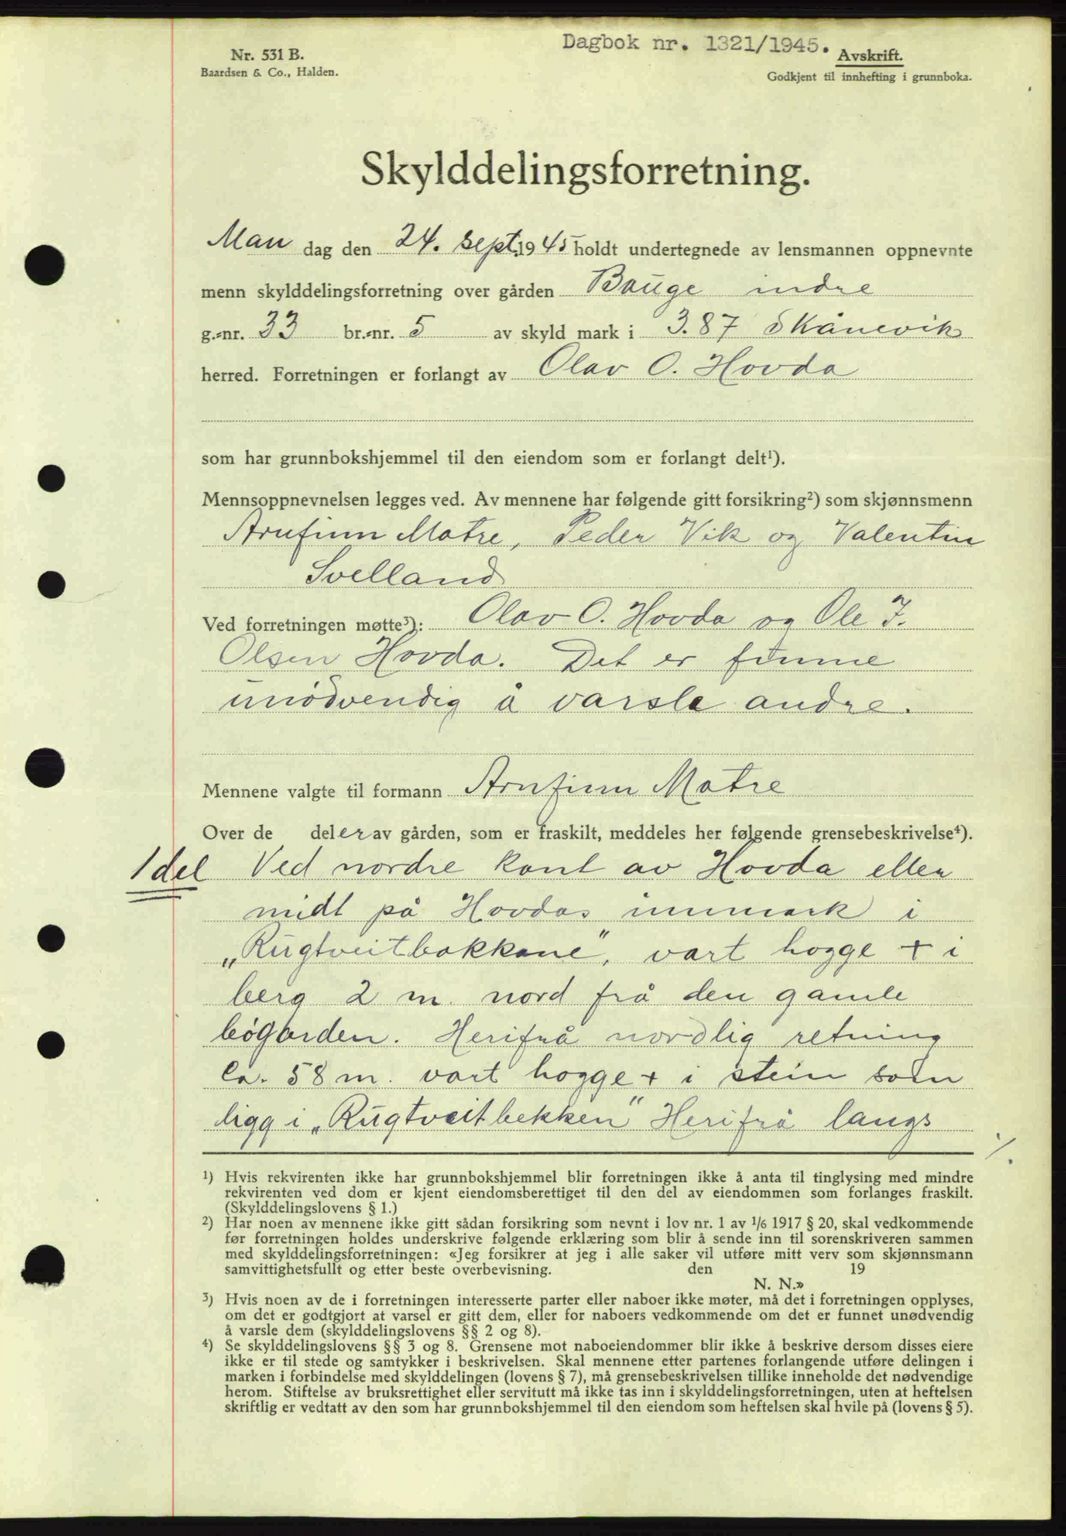 Nr. 531 B.
Baardsen & Co., Halden.
Dagbok nr. 1321/1945.
Avskrift.
Godkjent til innhefting i grunnboka.
Skylddelingsforretning.
Man dag den 24. sept. 1945 holdt undertegnede av lensmannen oppnevnte
menn skylddelingsforretning over gården Bauge indre
g.-nr. 33 br.-nr. 5 av skyld mark i 3.87 Skånevik
herred. Forretningen er forlangt av Olav O. Hovda
som har grunnbokshjemmel til den eiendom som er forlangt delt¹).
Mennsoppnevnelsen legges ved. Av mennene har følgende gitt forsikring²) som skjønnsmenn
Arnfinn Matre, Peder Vik og Valentin
Svelland
Ved forretningen møtte³): Olav O. Hovda og Ole J.
Olsen Hovda. Det er funne
unødvendig å varsle andre.
Mennene valgte til formann Arnfinn Matre
Over de deler av gården, som er fraskilt, meddeles her følgende grensebeskrivelse⁴).
1 del Ved nordre kant av Hovda eller
midt på Hovdas innmark i
„Rugtveitbakkane”, vart hogge + i
berg 2 m. nord frå den gamle
bøgarden. Herifrå nordlig retning
Ca. 58 m. vart hogge + i stein som
ligg i „Rugtveitbekken” Herifrå langs
./.
¹) Hvis rekvirenten ikke har grunnbokshjemmel blir forretningen ikke å anta til tinglysing med mindre
rekvirenten ved dom er kjent eiendomsberettiget til den del av eiendommen som forlanges fraskilt.
(Skylddelingslovens § 1.)
²) Har noen av mennene ikke gitt sådan forsikring som nevnt i lov nr. 1 av 1/6 1917 § 20, skal vedkommende
før forretningen holdes underskrive følgende erklæring som blir å sende inn til sorenskriveren sammen
med skylddelingsforretningen: «Jeg forsikrer at jeg i alle saker vil utføre mitt verv som skjønnsmann
samvittighetsfullt og etter beste overbevisning. den 19
N. N.»
³) Hvis noen av de i forretningen interesserte parter eller naboer ikke møter, må det i forretningen opplyses,
om det er godtgjort at varsel er gitt dem, eller for naboers vedkommende om det er funnet unødvendig
å varsle dem (skylddelingslovens §§ 2 og 8).
⁴) Se skylddelingslovens §§ 3 og 8. Grensene mot naboeiendommer blir ikke å beskrive dersom disses eiere
ikke er til stede og samtykker i beskrivelsen. Skal mennene etter partenes forlangende utføre delingen i
marken i forbindelse med skylddelingen (lovens § 7), må grensebeskrivelsen tillike inneholde det nødvendige
herom. Stiftelse av bruksrettighet eller servitutt må ikke tas inn i skylddelingsforretningen, uten at heftelsen
skriftlig er vedtatt av den som har grunnbokshjemmel til den eiendom som heftelsen skal hvile på (lovens § 5).